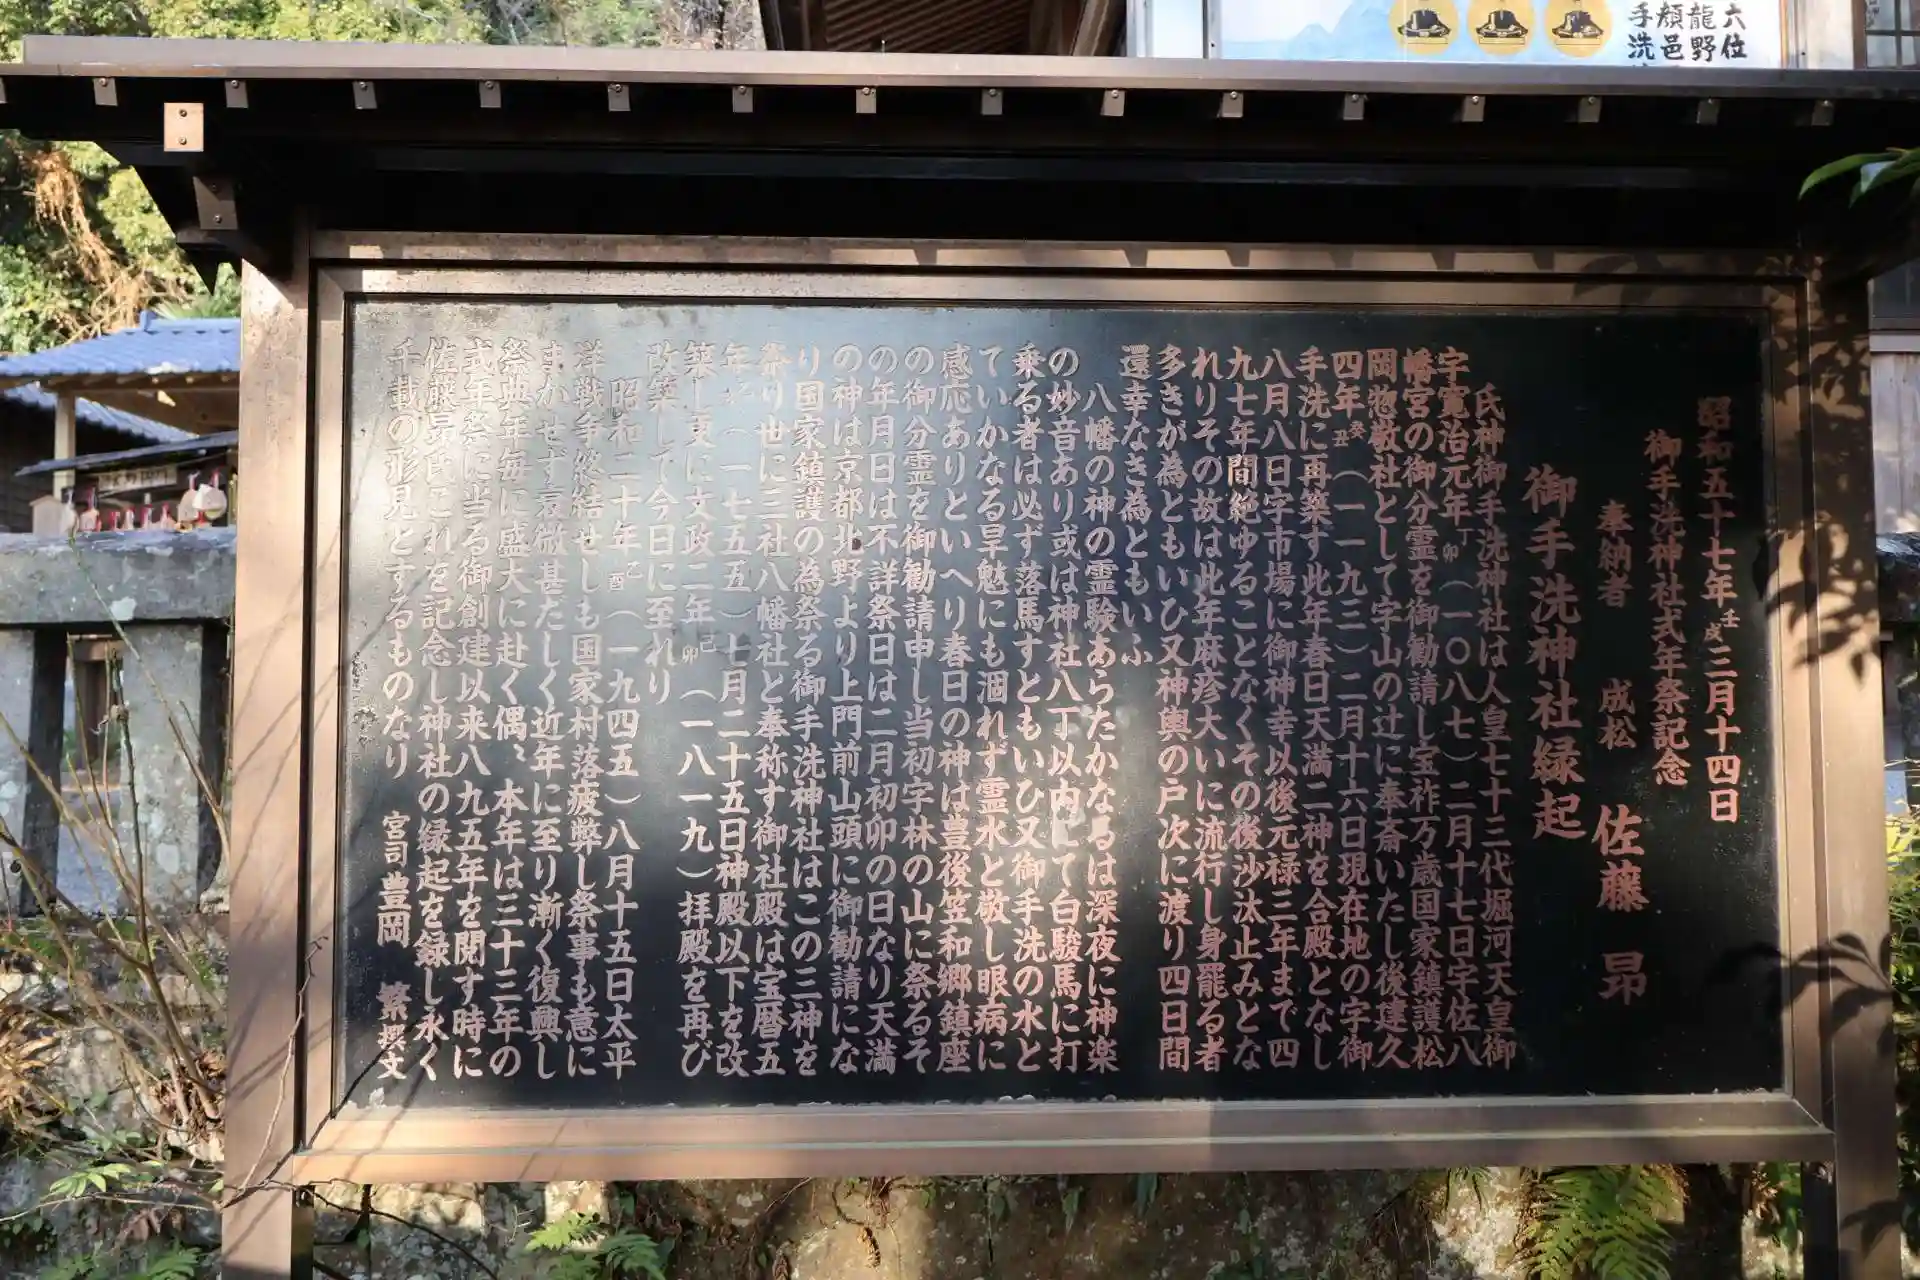 六位
龍野
頬邑
手洗
昭和五十七年壬戌三月十四日
御手洗神社式年祭記念
奉納者 成松 佐藤 昻
御手洗神社縁起
氏神御手洗神社は人皇七十三代堀河天皇御
宇寛治元年丁卯(一〇八七)二月十七日宇佐八
幡宮の御分霊を御勧請し宝祚万歳国家鎮護松
岡惣敬社として字山の辻に奉斎いたし後建久
四年癸丑(一一九三)二月十六日現在地の字御
手洗に再築す此年春日天満二神を合殿となし
八月八日字市場に御神幸以後元禄三年まで四
九七年間絶ゆることなくその後沙汰止みとな
れりその故は此年麻疹大いに流行し身罷る者
多きが為ともいひ又神輿の戸次に渡り四日間
還幸なき為ともいふ
八幡の神の霊験あらたかなるは深夜に神楽
の妙音あり或は神社八丁以内にて白駿馬に打
乗る者は必ず落馬すともいひ又御手洗の水と
ていかなる旱魃にも涸れず霊水と敬し眼病に
感応ありといへり春日の神は豊後笠和郷鎮座
の御分霊を御勧請申し当初字林の山に祭るそ
の年月日は不詳祭日は二月初卯の日なり天満
の神は京都北野より上門前山頭に御勧請にな
り国家鎮護の為祭る御手洗神社はこの三神を
斎り世に三社八幡社と奉称す御社殿は宝暦五
年乙亥(一七五五)七月二十五日神殿以下を改
築し更に文政二年己卯(一八一九)拝殿を再び
改築して今日に至れり
昭和二十年乙酉(一九四五)八月十五日太平
洋戦争終結せしも国家村落疲弊し祭事も意に
まかせず衰微甚だしく近年に至り漸く復興し
祭典年毎に盛大に赴く偶、本年は三十三年の
式年祭に当る御創建以来八九五年を閲す時に
佐藤昻氏これを記念し神社の縁起を録し永く
千載の形見とするものなり 宮司 豊岡 繁撰文